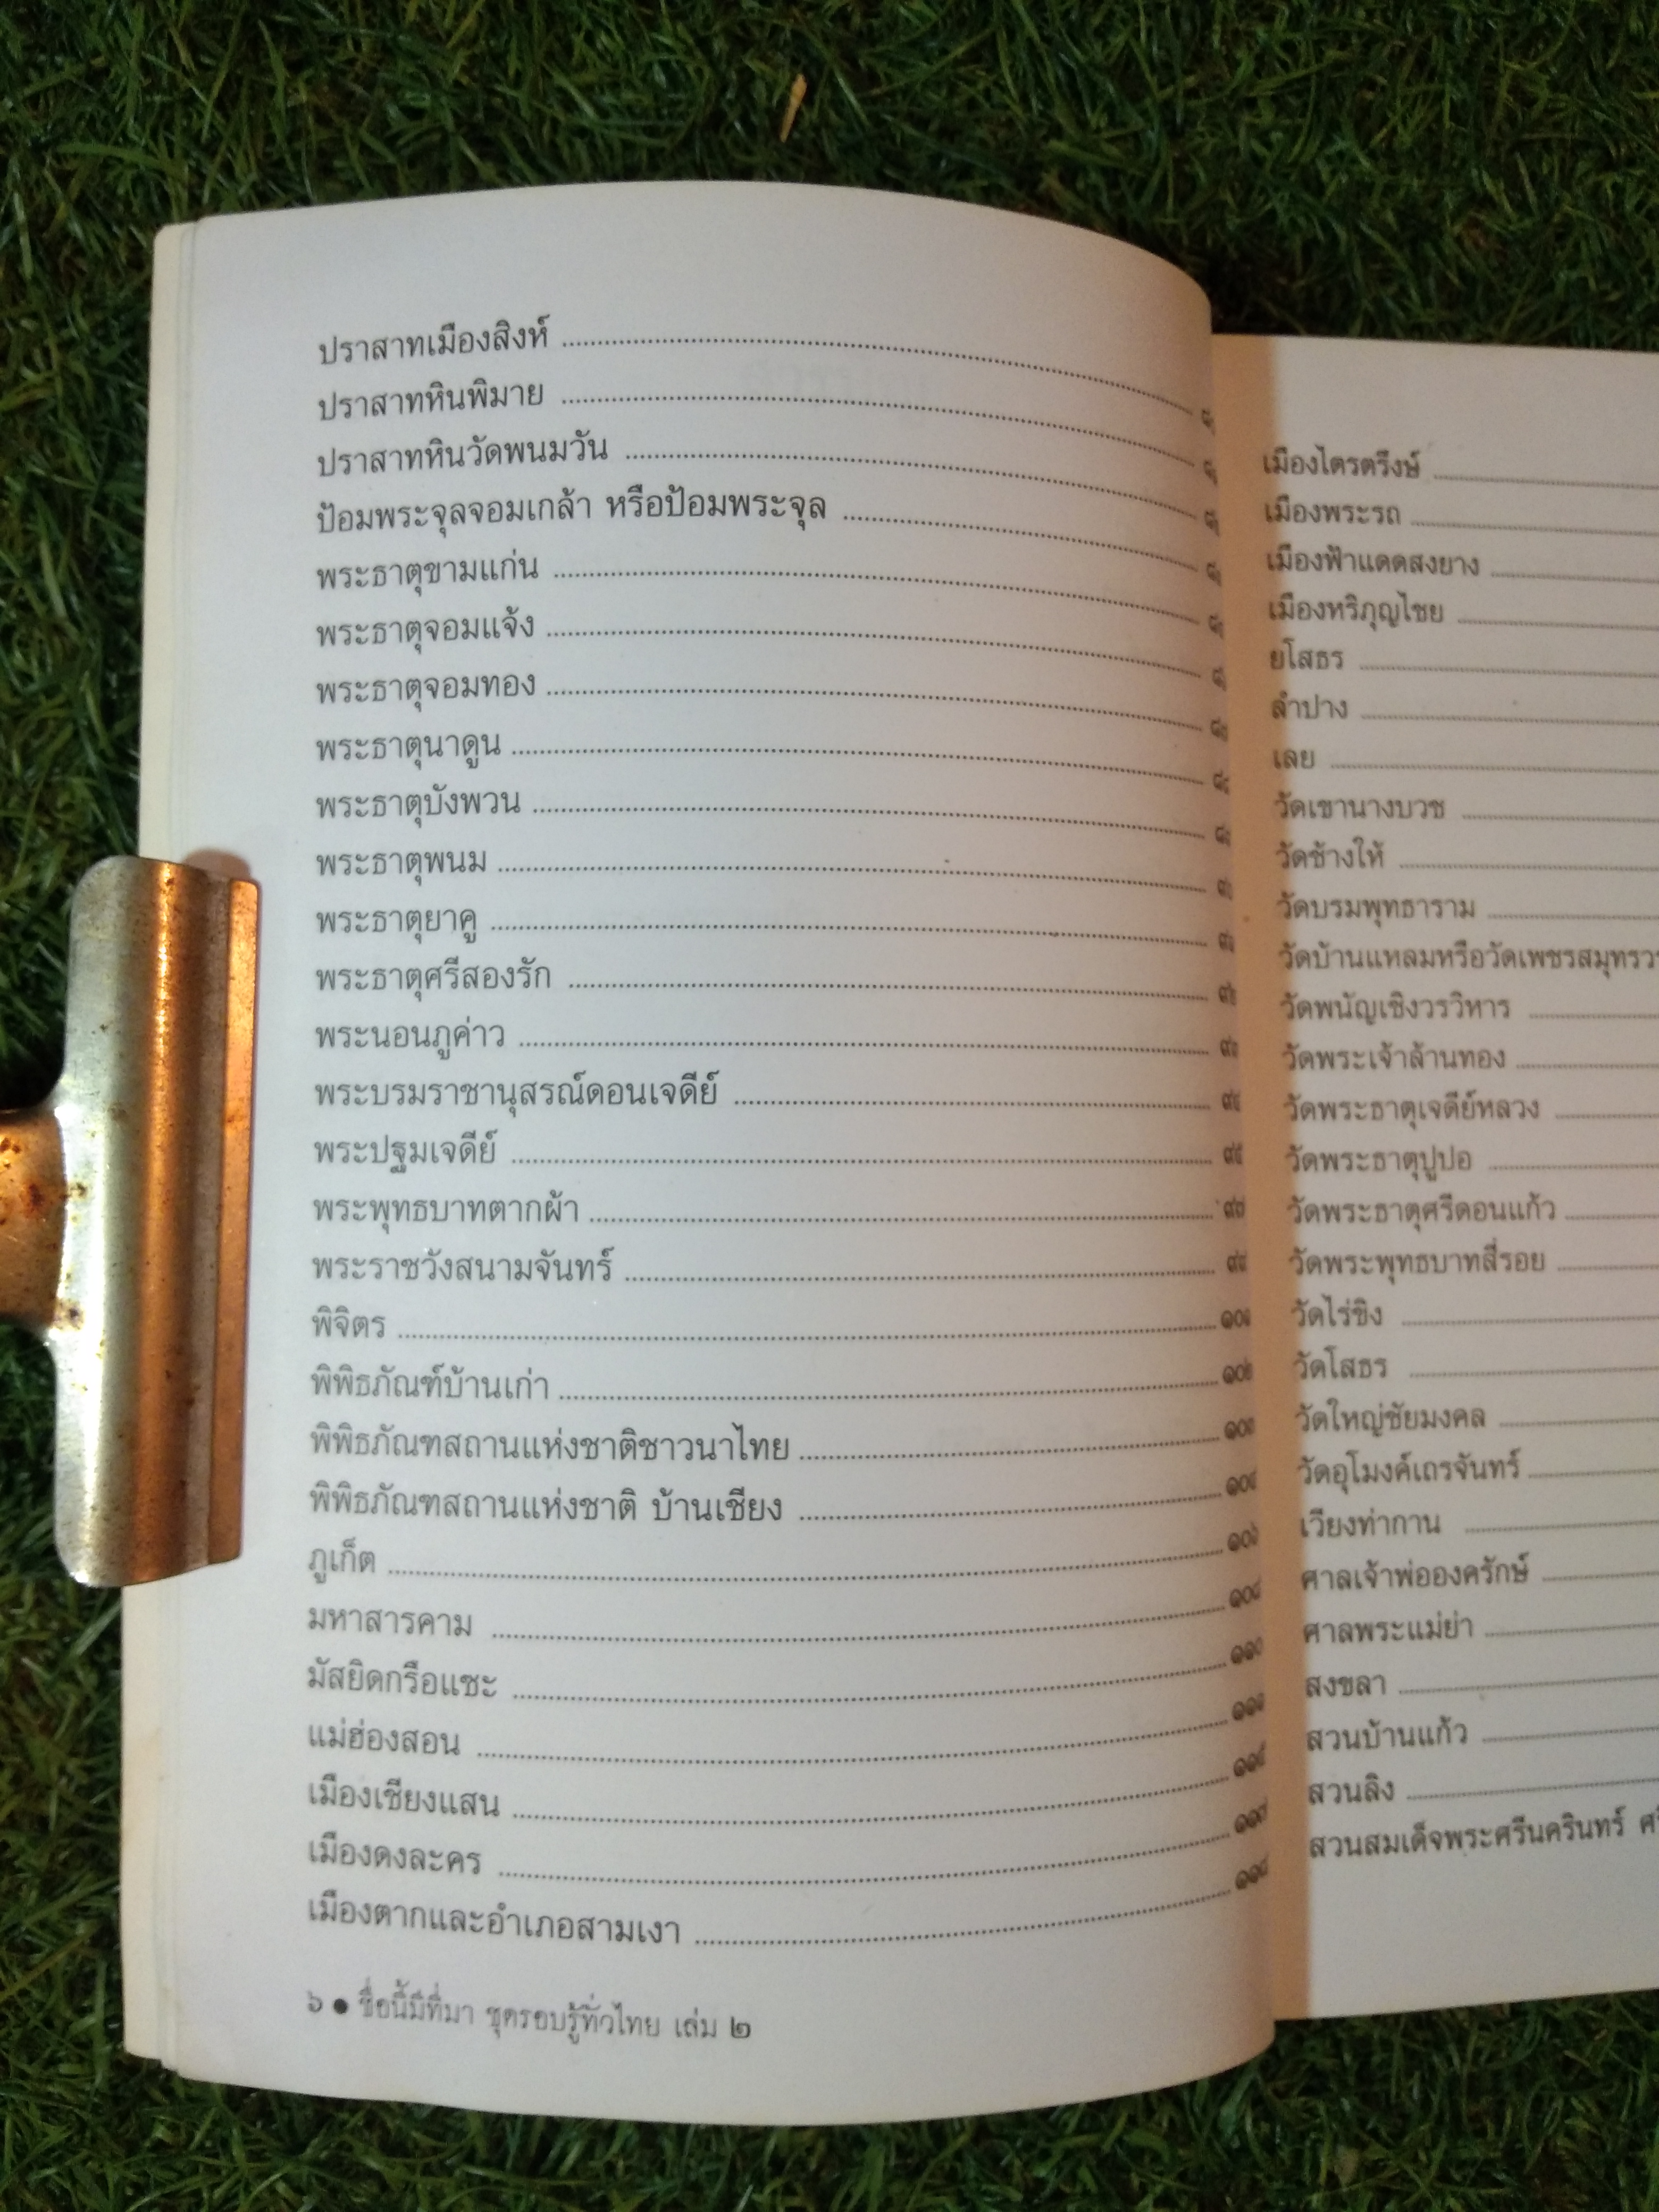 ปราสาทเมืองสิงห์
ปราสาทหินพิมาย
ปราสาทหินวัดพนมวัน
ป้อมพระจุลจอมเกล้า หรือป้อมพระจุล
พระธาตุขามแก่น
พระธาตุจอมแจ้ง
พระธาตุจอมทอง
พระธาตุนาดูน
พระธาตุบังพวน
พระธาตุพนม
พระธาตุยาคู
พระธาตุศรีสองรัก
พระนอนภูค่าว
พระบรมราชานุสรณ์ดอนเจดีย์
พระปฐมเจดีย์
พระพุทธบาทตากผ้า
พระราชวังสนามจันทร์
พิจิตร
พิพิธภัณฑ์บ้านเก่า
พิพิธภัณฑสถานแห่งชาติชาวนาไทย
พิพิธภัณฑสถานแห่งชาติ บ้านเชียง
ภูเก็ต
มหาสารคาม
มัสยิดกรือแซะ
แม่ฮ่องสอน
เมืองเชียงแสน
เมืองดงละคร
เมืองตากและอำเภอสามเงา
๖ ● ชื่อนี้มีที่มา ชุดรอบรู้ทั่วไทย เล่ม ๒
เมืองไตรตรึงษ์
เมืองพระรถ
เมืองฟ้าแดดสงยาง
เมืองหริภุญไชย
ยโสธร
ลำปาง
เลย
วัดเขานางบวช
วัดช้างให้
วัดบรมพุทธาราม
วัดบ้านแหลมหรือวัดเพชรสมุทรว
วัดพนัญเชิงวรวิหาร
วัดพระเจ้าล้านทอง
วัดพระธาตุเจดีย์หลวง
วัดพระธาตุปูปอ
วัดพระธาตุศรีดอนแก้ว
วัดพระพุทธบาทสี่รอย
วัดไร่ขิง
วัดโสธร
วัดใหญ่ชัยมงคล
วัดอุโมงค์เถรจันทร์
เวียงท่ากาน
ศาลเจ้าพ่อองครักษ์
ศาลพระแม่ย่า
สงขลา
สวนบ้านแก้ว
สวนลิง
สวนสมเด็จพระศรีนครินทร์